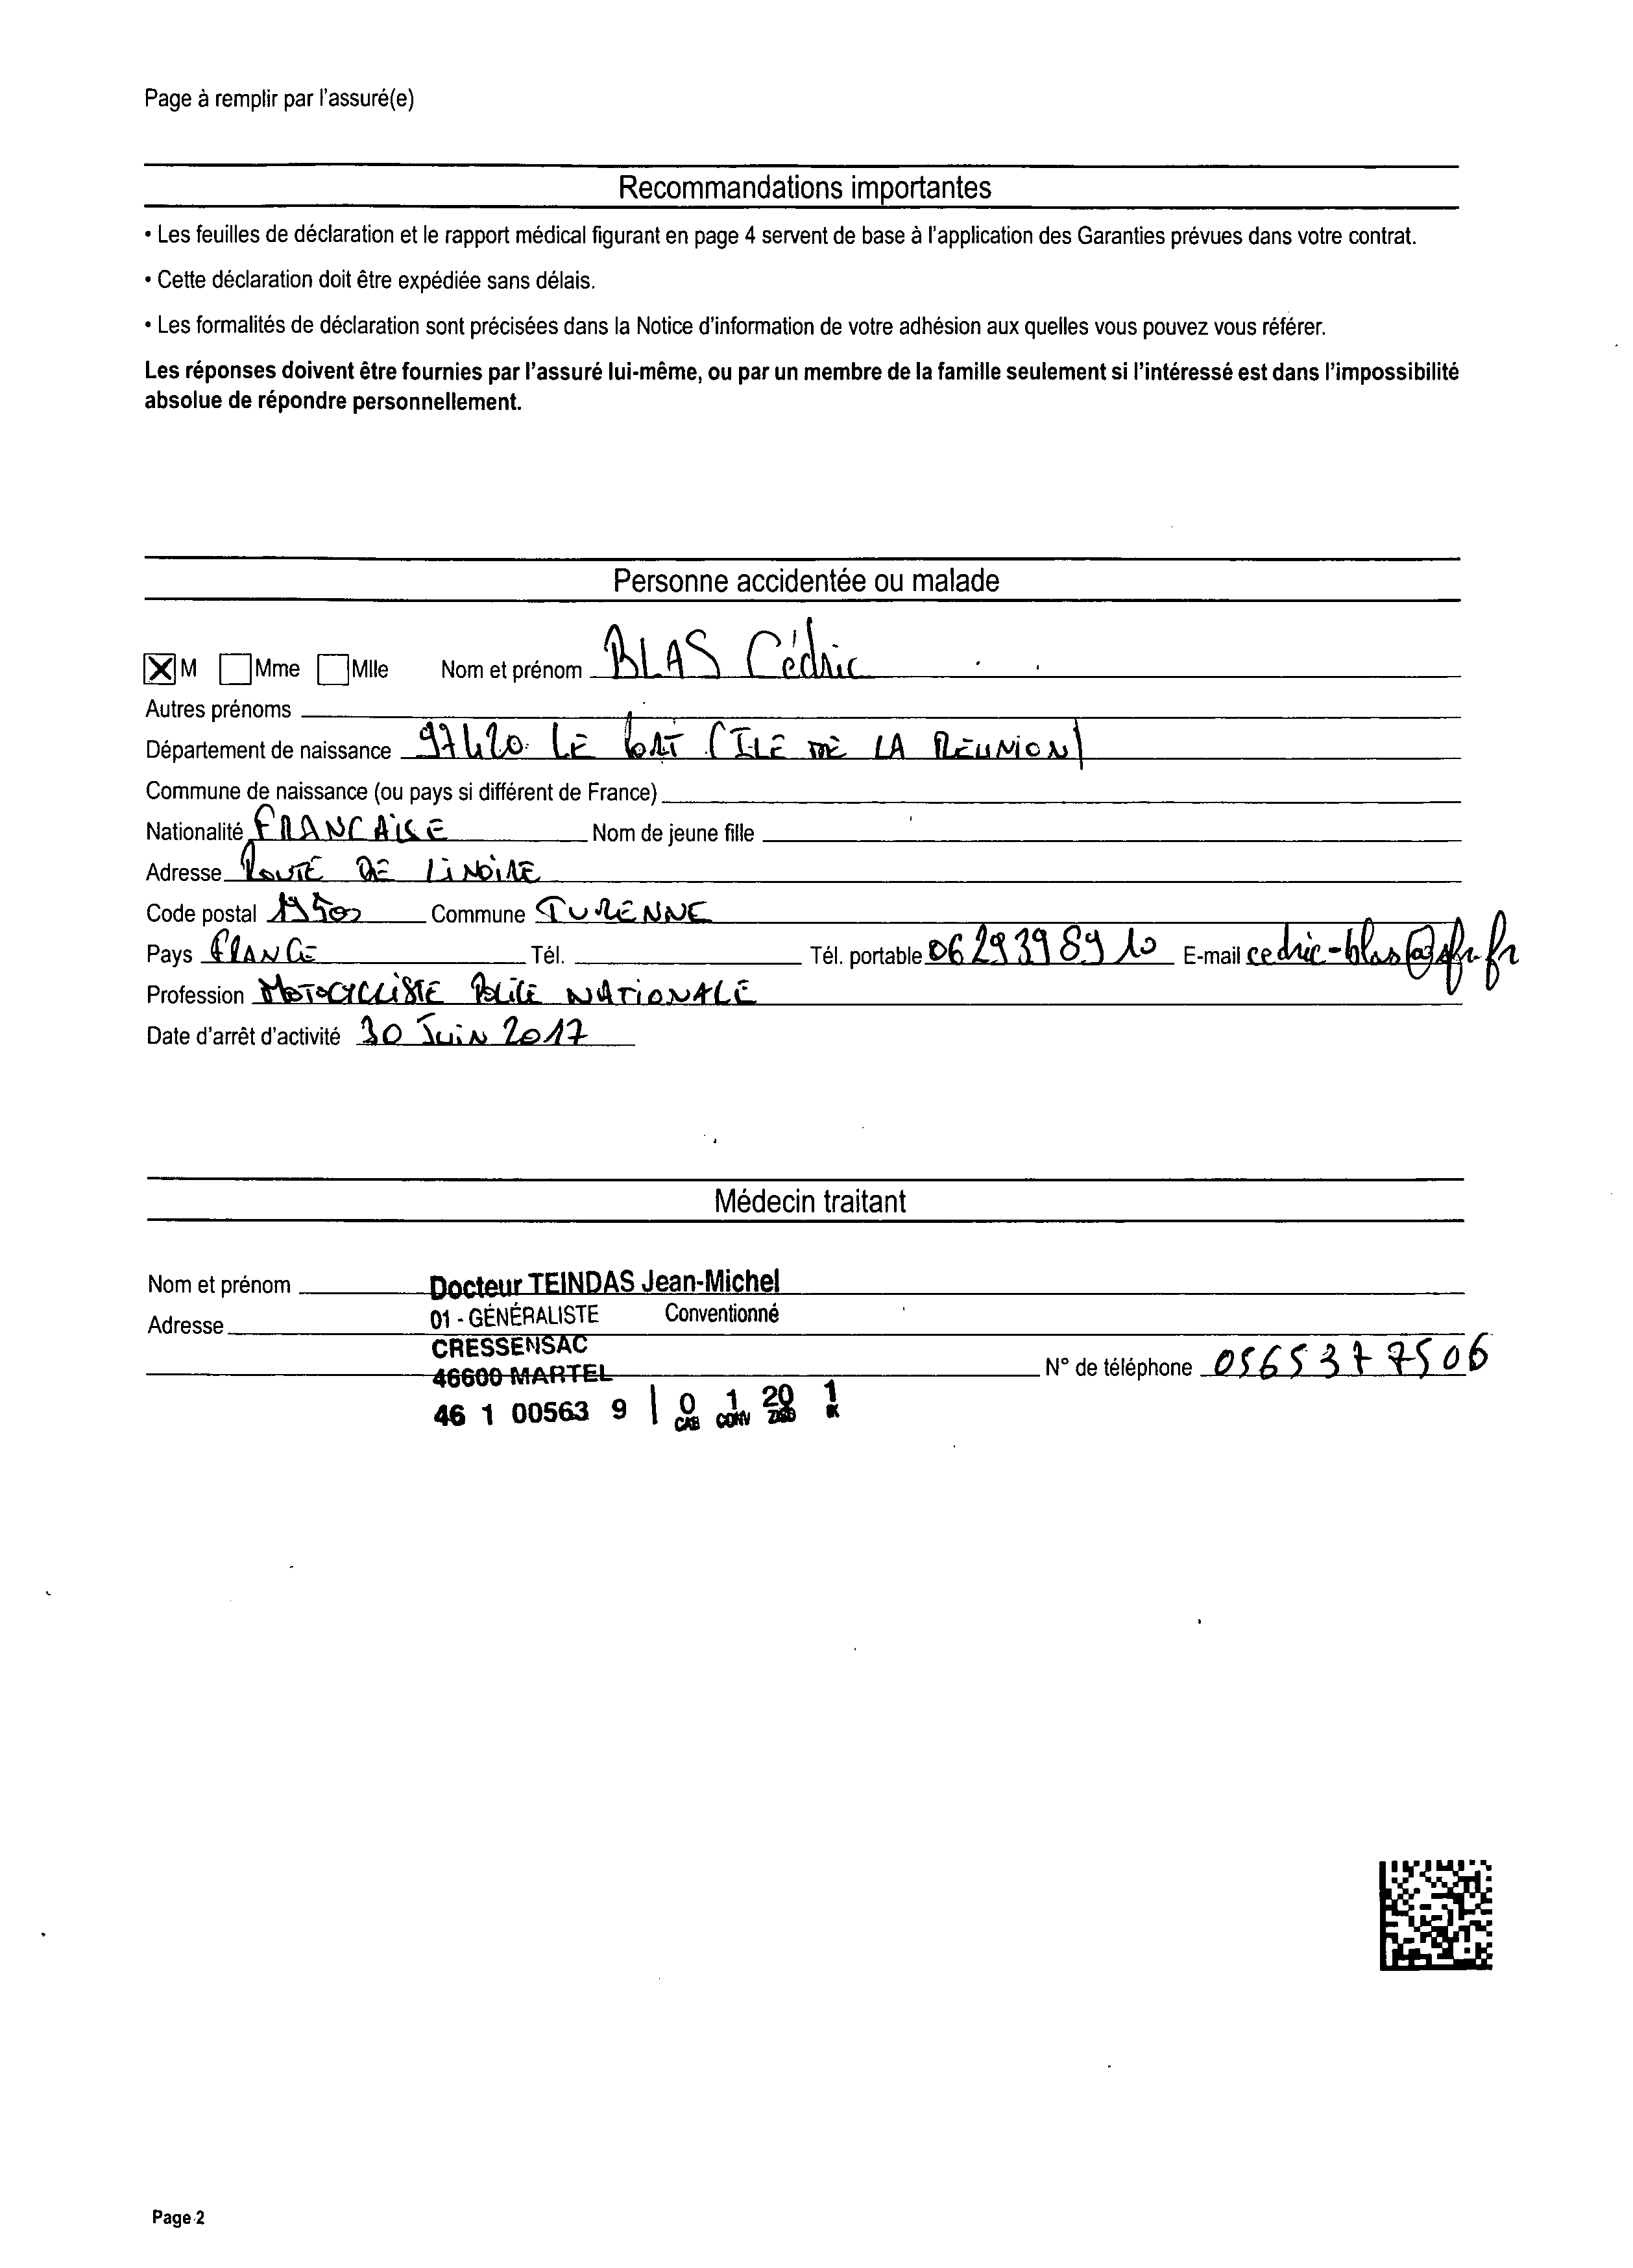 Page à remplir par l'assuré(e)
Recommandations importantes
• Les feuilles de déclaration et le rapport médical figurant en page 4 servent de base à l'application des Garanties prévues dans votre contrat.
• Cette déclaration doit être expédiée sans délais.
• Les formalités de déclaration sont précisées dans la Notice d'information de votre adhésion aux quelles vous pouvez vous référer.
Les réponses doivent être fournies par l'assuré lui-même, ou par un membre de la famille seulement si l'intéressé est dans l'impossibilité
absolue de répondre personnellement.
Personne accidentée ou malade
M Mme Mlle Nom et prénom BLAS Cédric
Autres prénoms
Département de naissance 97420 LE PORT (ILE DE LA REUNION)
Commune de naissance (ou pays si différent de France)
Nationalité FRANCAISE Nom de jeune fille
Adresse ROUTE DE LINOIRE
Code postal 19500 Commune TURENNE
Pays FRANCE Tél. Tél. portable 06 29 39 89 10 E-mail cedric-blas@sfr.fr
Profession MOTOCYCLISTE POLICE NATIONALE
Date d'arrêt d'activité 30 JUIN 2017
Médecin traitant
Nom et prénom Docteur TEINDAS Jean-Michel
Adresse 01 - GÉNÉRALISTE Conventionné
CRESSENSAC
46600 MARTEL N° de téléphone 0565377506
46 1 00563 9 | 0 1 20 1
CAB CONV ZISD IK
Page 2